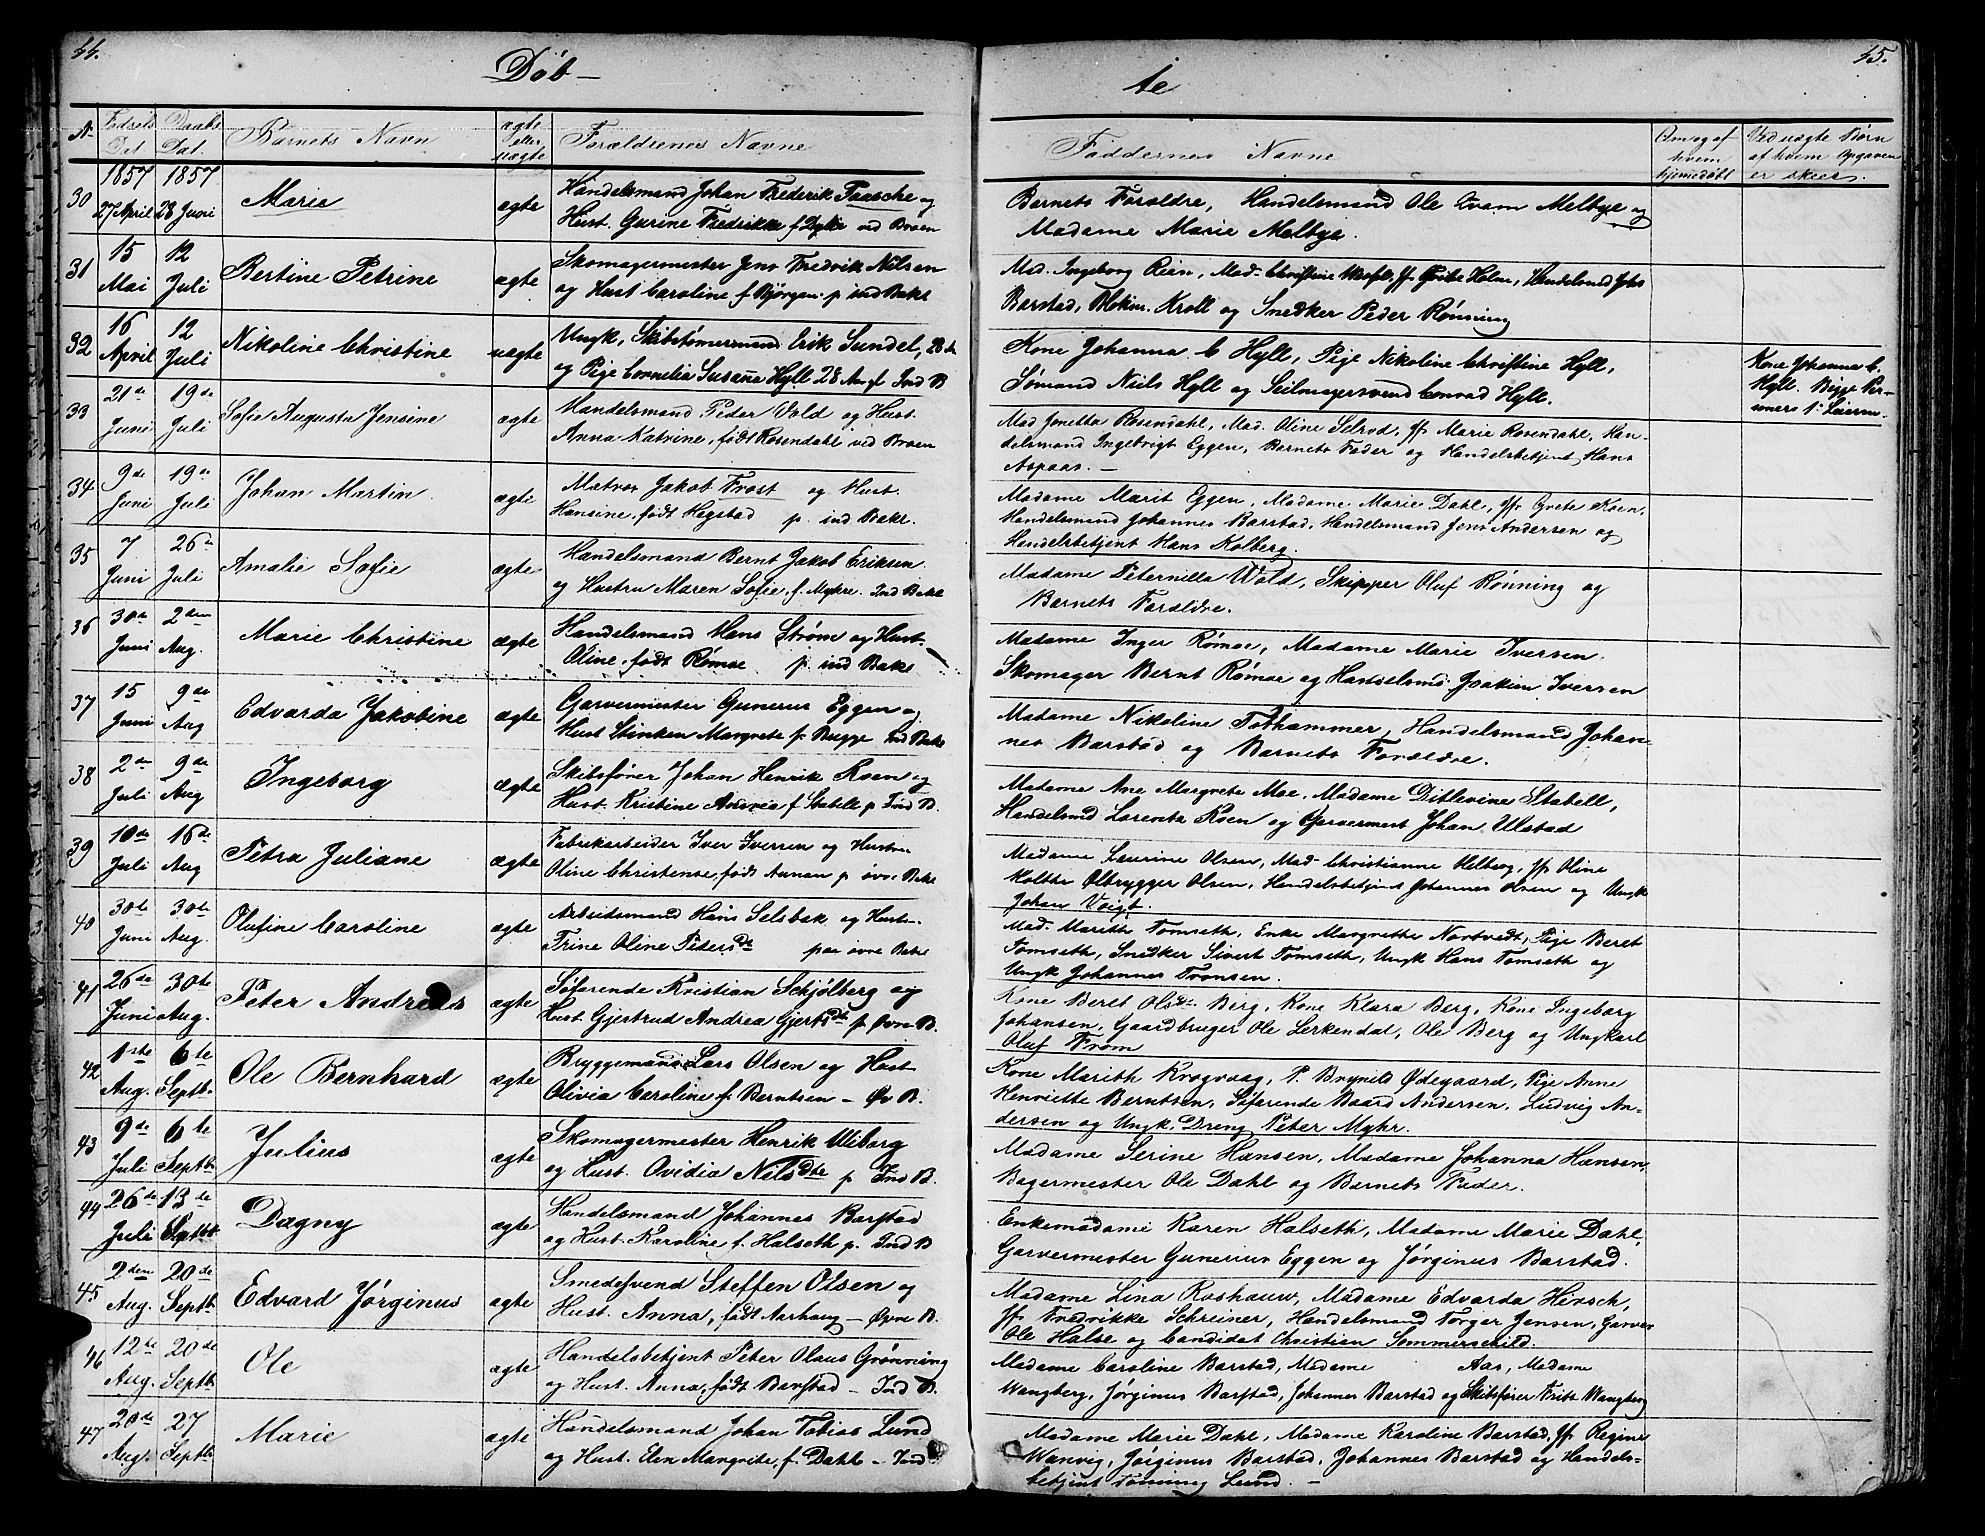 44.
Døb-
No
Fødsels Dat.
Daabs Dat.
Barnets Navn
ægte eller uægte
Forældrenes Navne
1857 1857
30 27 April 28 Juni Marie ægte Handelsmand Johan Frederik Paasche og
Hust. Gurine Fredrikke f. Dyke ved Broen
31 15 Mai 12 Juli Bertine Petrine ægte Skomagermester Jens Fredrik Nilsen
og Hust Caroline f. Bjørgen p. ind Bakl
32 16 April 12 Juli Nikoline Christine uægte Ungk. Skibstømermand Erik Sundel, 28
og Pige Cornelia Susana Hyll 28 Aar f. Ind B
33 21de Juni 19de Juli Sofie Augusta Jensine ægte Handelsmand Peder Vold og Hust.
Anna Katrine, født Rosendahl ved Broen
34 9de Juni 19de Juli Johan Martin ægte Matros Jakob Frost og Hust.
Hansine, født Hagstad p. ind Bakl.
35 7 Juni 26de Juli Amalie Sofie ægte Handelsmand Bernt Jakob Eriksen
og Hustru Maren Sofie, f. Myhre. Ind Bakl
36 30te Juni 2den Aug. Marie Christine ægte Handelsmand Hans Strøm og Hust.
Oline, født Rømoe p. ind Bakl
37 15 Juni 9de Aug Edvarda Jakobine ægte Garvermester Gunerus Eggen og
Hust Stinken Margrete f. Bugge Ind Bakl
38 2den Juli 9de Aug Ingeborg ægte Skibsfører Johan Henrik Koen og
Hust. Kristine Andrea f. Stabell p. Ind B.
39 10de Juli 16de Aug Petra Juliane ægte Fabrikarbeider Iver Iversen og Hustru
Oline Christense, født Aunan p. øvre Bakl
40 30te Juni 30te Aug. Olufine Caroline ægte Arbeidsmand Hans Selsbak og Hust.
Trine Oline Pedersdt. paa øvre Bakl
41 26de Juni 30te Aug. Peter Andreas ægte Søfarende Kristian Schjølberg og
Hust. Gjertrud Andrea Gjertsdt. p. Øvre B.
42 1ste Aug. 6te Septb. Ole Bernhard ægte Bryggemand Lars Olsen og Hust
Olivia Caroline f. Berntsen - Øv B.
43 9de Juli 6te Septb. Julius ægte Skomagermester Henrik Wiborg
og Hust. Ovidia Nilsdtr p Ind B.
44 26de Juli 13de Septb Dagny ægte Handelsmand Johannes Barstad
og Hust. Karoline f. Halseth p. Ind B
45 2den Aug. 20de Septb. Edvard Jørginus ægte Smedesvend Steffen Olsen og
Hust. Anna, født Aarhaug - Øvre B.
46 12te Aug. 20de Septb. Ole ægte Handelsbetjent Peter Olaus Grønning
og Hust. Anna, født Barstad - Ind B.
47 20de Aug. 27 Septb. Marie ægte Handelsmand Johan Tobias Lund
og Hust. Elen Margrete, f. Dahl - Ind
45.
te
Faddernes Navne
Om og af hvem hjemmedøbt
Ved uægte Børn af hvem Opgaven er skeet.
Barnets Forældre, Handelsmand Ole Qvam Melbye og
Madame Marie Melbye.
Mad. Ingeborg Rein, Mad. Christine Hassel, Jfr Grete Holm, Handelsmd Johs
Barstad, Blokm. Kroll og Snedker Peder Rønning
Kone Johanna C Hyll, Pige Nikoline Christine Hyll,
Sømand Niels Hyll og Seilmagersvend Conrad Hyll.
Kone Johanna C.
Hyll. Begge Per-
soners 1. Leierm.
Mad Jonetta Rosendahl, Mad. Oline Selrod, Jfr Marie Rosendahl, Han-
delsmand Ingebrigt Eggen, Barnets Fader og Handelsbetjent Hans
Aspaas. -
Madame Marit Eggen, Madame Marie Dahl, Jfr Grete Koen,
Handelsmand Johannes Barstad, Handelsmand Jens Andersen og
Handelsbetjent Hans Kolberg.
Madame Peternilla Wold, Skipper Oluf Rønning og
Barnets Forældre.
Madame Inger Rømoe, Madame Marie Iversen.
Skomager Bernt Rømoe og Handelsmd. Joakim Iversen
Madame Nikoline Tothammer, Handelsmand Johan-
nes Barstad og Barnets Forældre.
Madame Ane Margrete Moe, Madame Ditlevine Stabell,
Handelsmd Lorents Koen og Garvermest Johan Ulstad
Madame Laurine Olsen, Mad. Christianne Helberg, Jfr Oline
Holthe Ølbrygger Olsen, Handelsbetjent Johannes Olsen og Ungk
Johan Voigt.
Mad. Marith Tomseth, Enke Margrethe Nortvedt, Pige Beret
Tomseth, Snedker Sivert Tomseth, Ungk Hans Tomseth og
Ungk Johannes Tronsen.
Kone Beret Olsdt. Berg, Kone Klara Berg, Kone Ingeborg
Johansen, Gaardbruger Ole Lerkendal, Ole Berg og Ungkarl
Oluf From
Kone Marith Krogvaag, P. Brynild Ødegaard, Pige Anne
Henriette Berntsen, Søfarende Baard Andersen, Ludvig An-
dersen og Ungk. Dreng Peter Myhr.
Madame Serine Hansen, Madame Johanna Hansen,
Bagermester Ole Dahl og Barnets Fader.
Enkemadame Karen Halseth, Madame Marie Dahl,
Garvermester Gunerius Eggen og Jørginus Barstad.
Madame Lina Roshauw, Madame Edvarda Hirsch,
Jfr Fredrikke Schreiner, Handelsmand Torger Jensen, Garver
Ole Halse og Candidat Christian Sommerschild.
Madame Caroline Barstad, Madame Aas, Madame
Wangberg, Jørginus Barstad, Johannes Barstad og Skibsfører Frits Wangberg
Madame Marie Dahl, Madame Karoline Barstad, Jfr Regine
Wanvig, Jørginus Barstad, Johannes Barstad og Handels-
betjent Tønning Lund. -